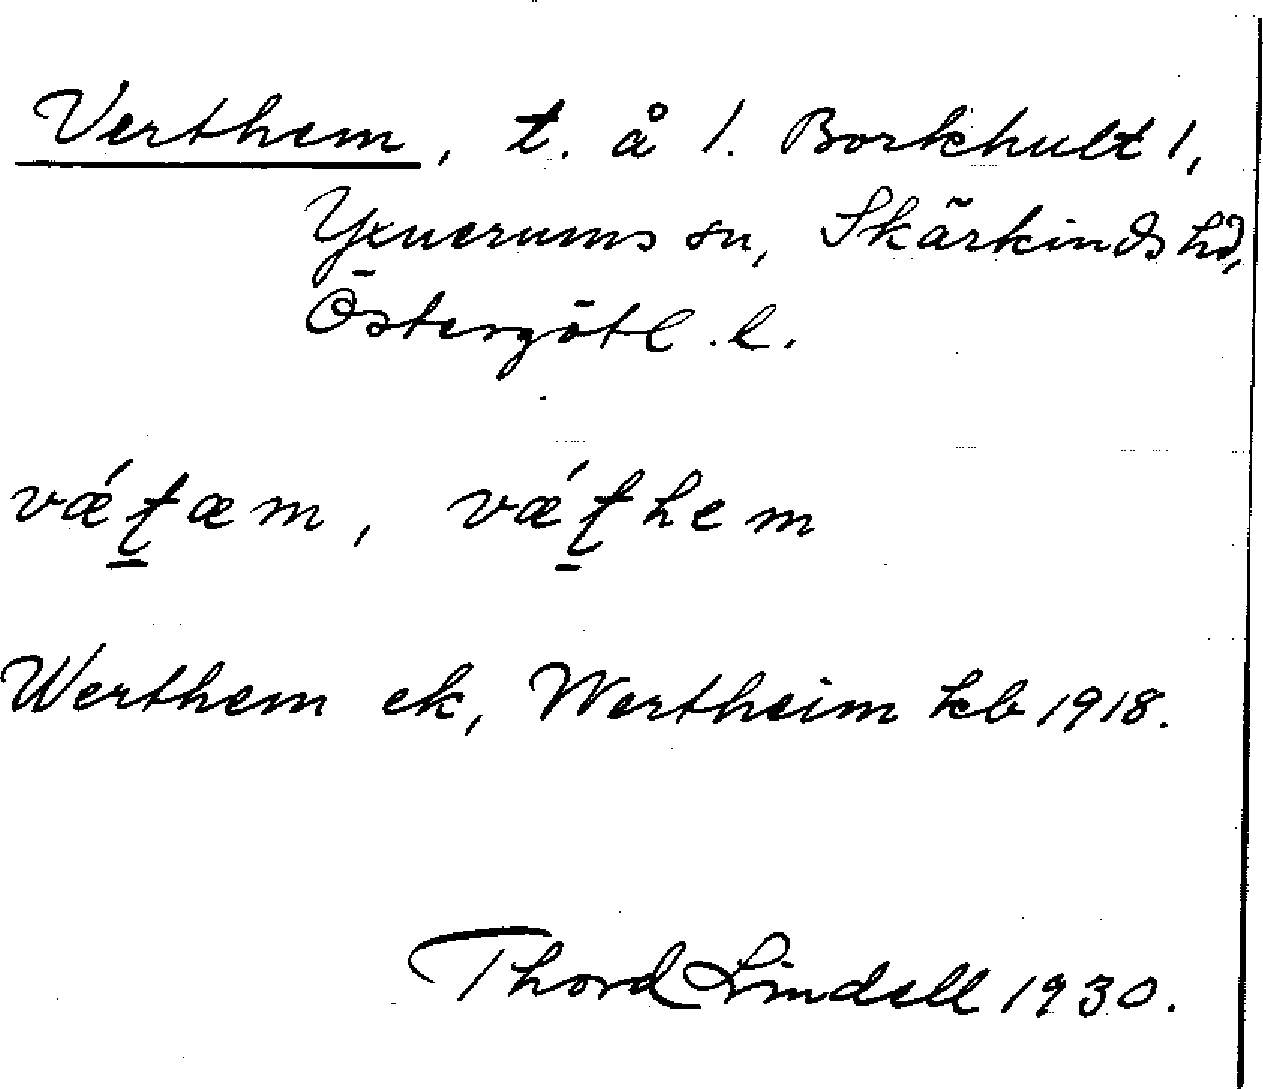 Verthem, t. å 1. Borkhult 1,
Yxnerums sn, Skärkinds hd,
Östergötl. l.
vǽʈæm, vǽʈhem
Werthem ek, Wertheim kb 1918.
Thord Lindell 1930.